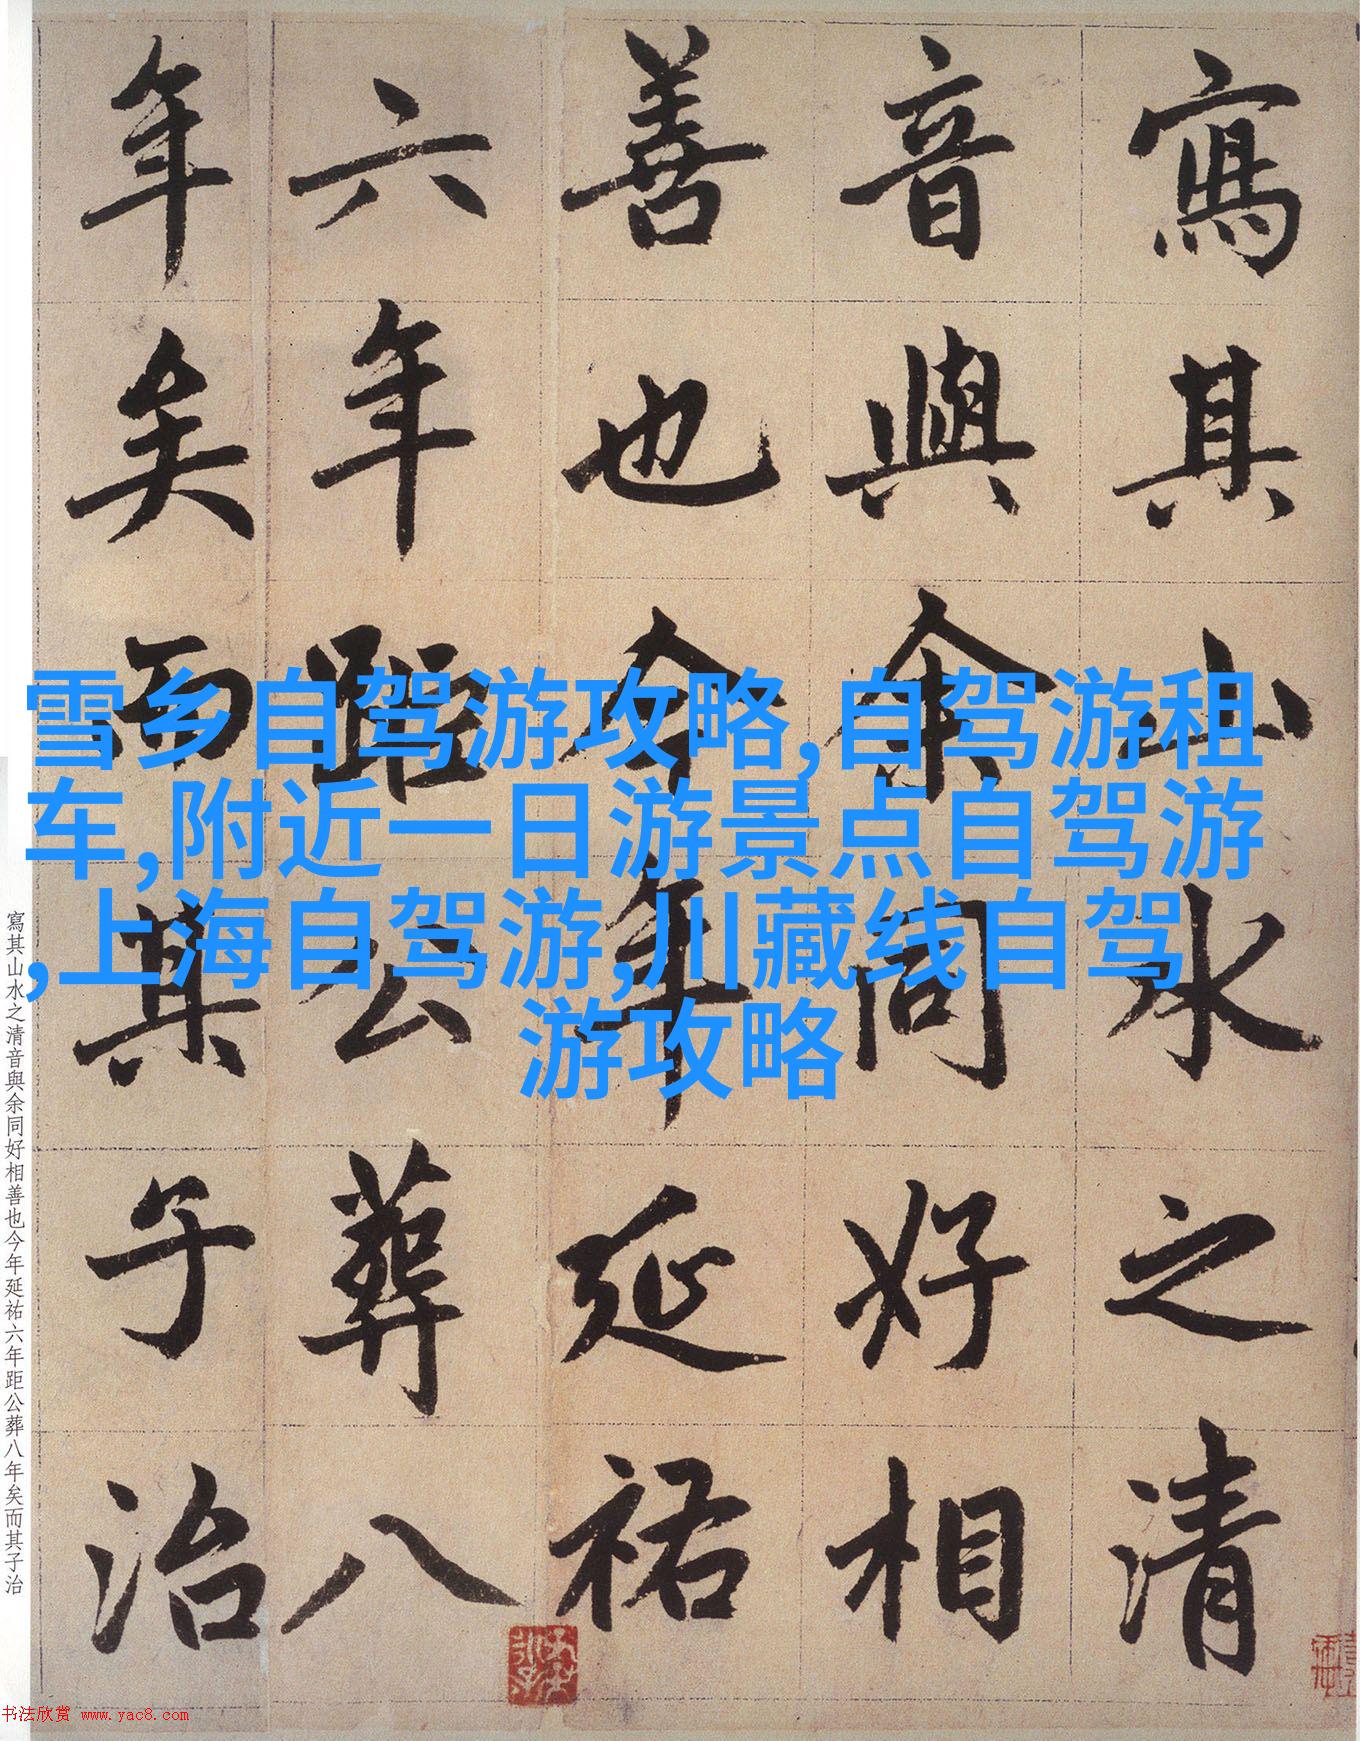 寫其山水之清
音與余同好相
善也今年延祐
六年距公葬八
年矣而其子治
雪乡自驾游攻略,自驾游租
车,附近一日游景点自驾游
,上海自驾游,川藏线自驾
游攻略
寫其山水之清音與余同好相善也今年延祐六年距公葬八年矣而其子治
书法欣赏 www.yac8.com